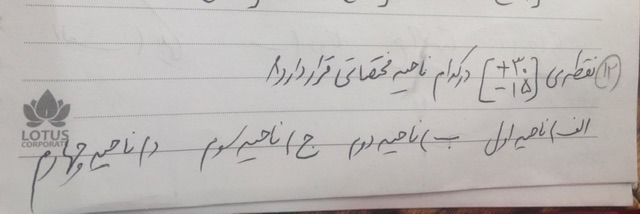 ۱۲) نقطه‌ی [+۳۰ −۱۵] در کدام ناحیه مختصاتی قرار دارد؟
الف) ناحیه اول ب) ناحیه دوم ج) ناحیه سوم د) ناحیه چهارم
LOTUS
CORPORATE